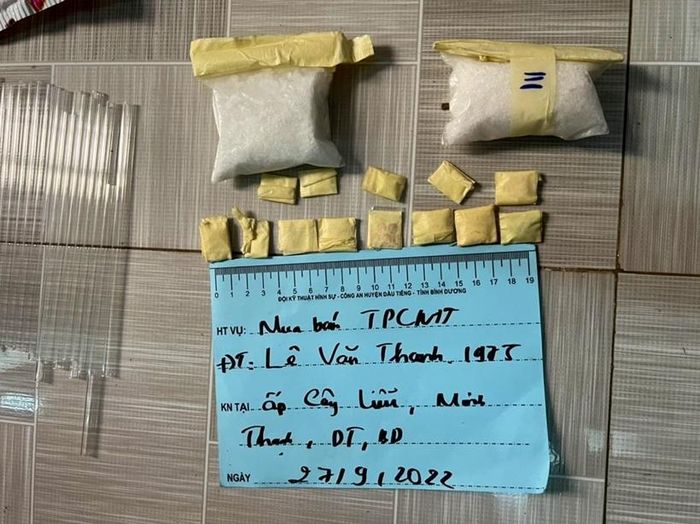 0 1 2 3 4 5 6 7 8 9 10 11 12 13 14 15 16 17 18 19
ĐỘI KỸ THUẬT HÌNH SỰ - CÔNG AN HUYỆN DẦU TIẾNG - TỈNH BÌNH DƯƠNG
HT VỤ: Mua bán TPCMT
ĐT: Lê Văn Thanh 1975
KN TẠI ấp Cây Liễu, Minh
Thạnh, DT, BD
NGÀY 27/9/2022